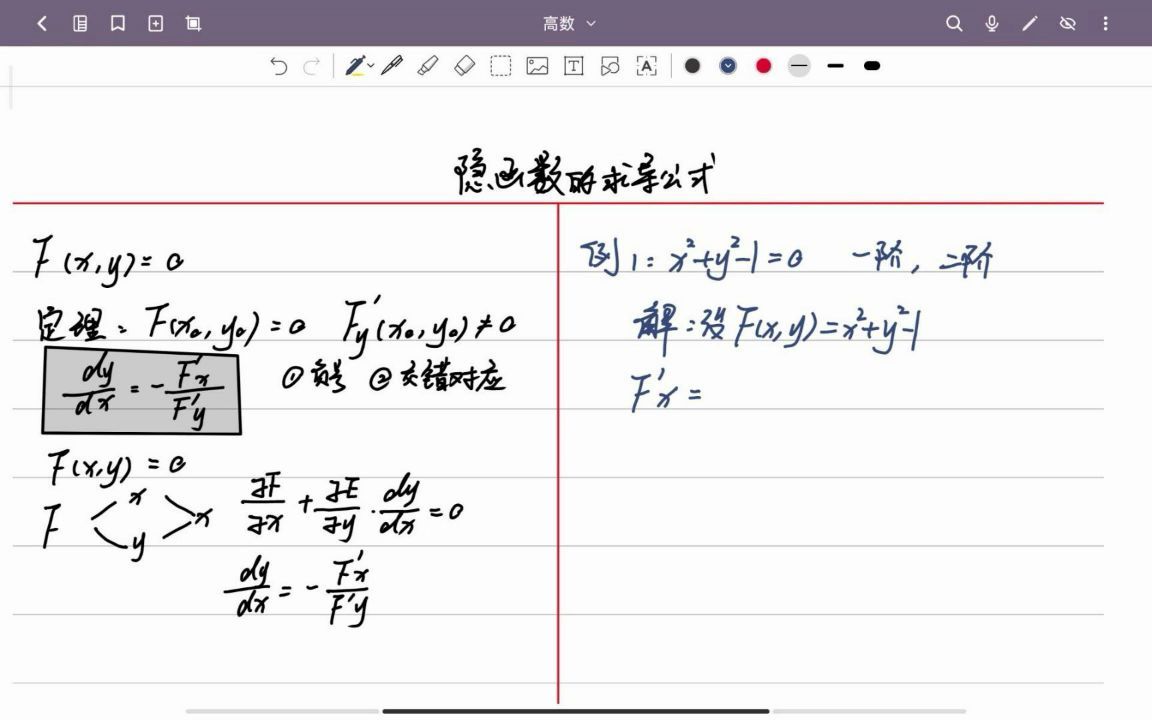 高数
隐函数的求导公式
F(x,y)=0
定理：F(x₀,y₀)=0 F'y(x₀,y₀)≠0
dy/dx = -F'x/F'y ①负号 ②交错对应
F(x,y)=0
F < x y > x ∂F/∂x + ∂F/∂y · dy/dx = 0
dy/dx = -F'x/F'y
例1: x²+y²-1=0 一阶, 二阶
解:设F(x,y)=x²+y²-1
F'x =